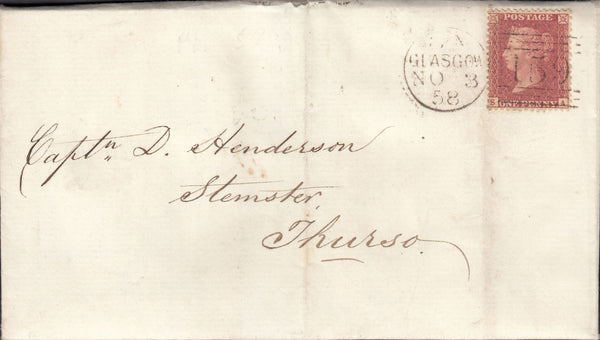 POSTAGE
GLASGOW
NO 3
58
159
S A
ONE PENNY
Captn D. Henderson
Stemster,
Thurso